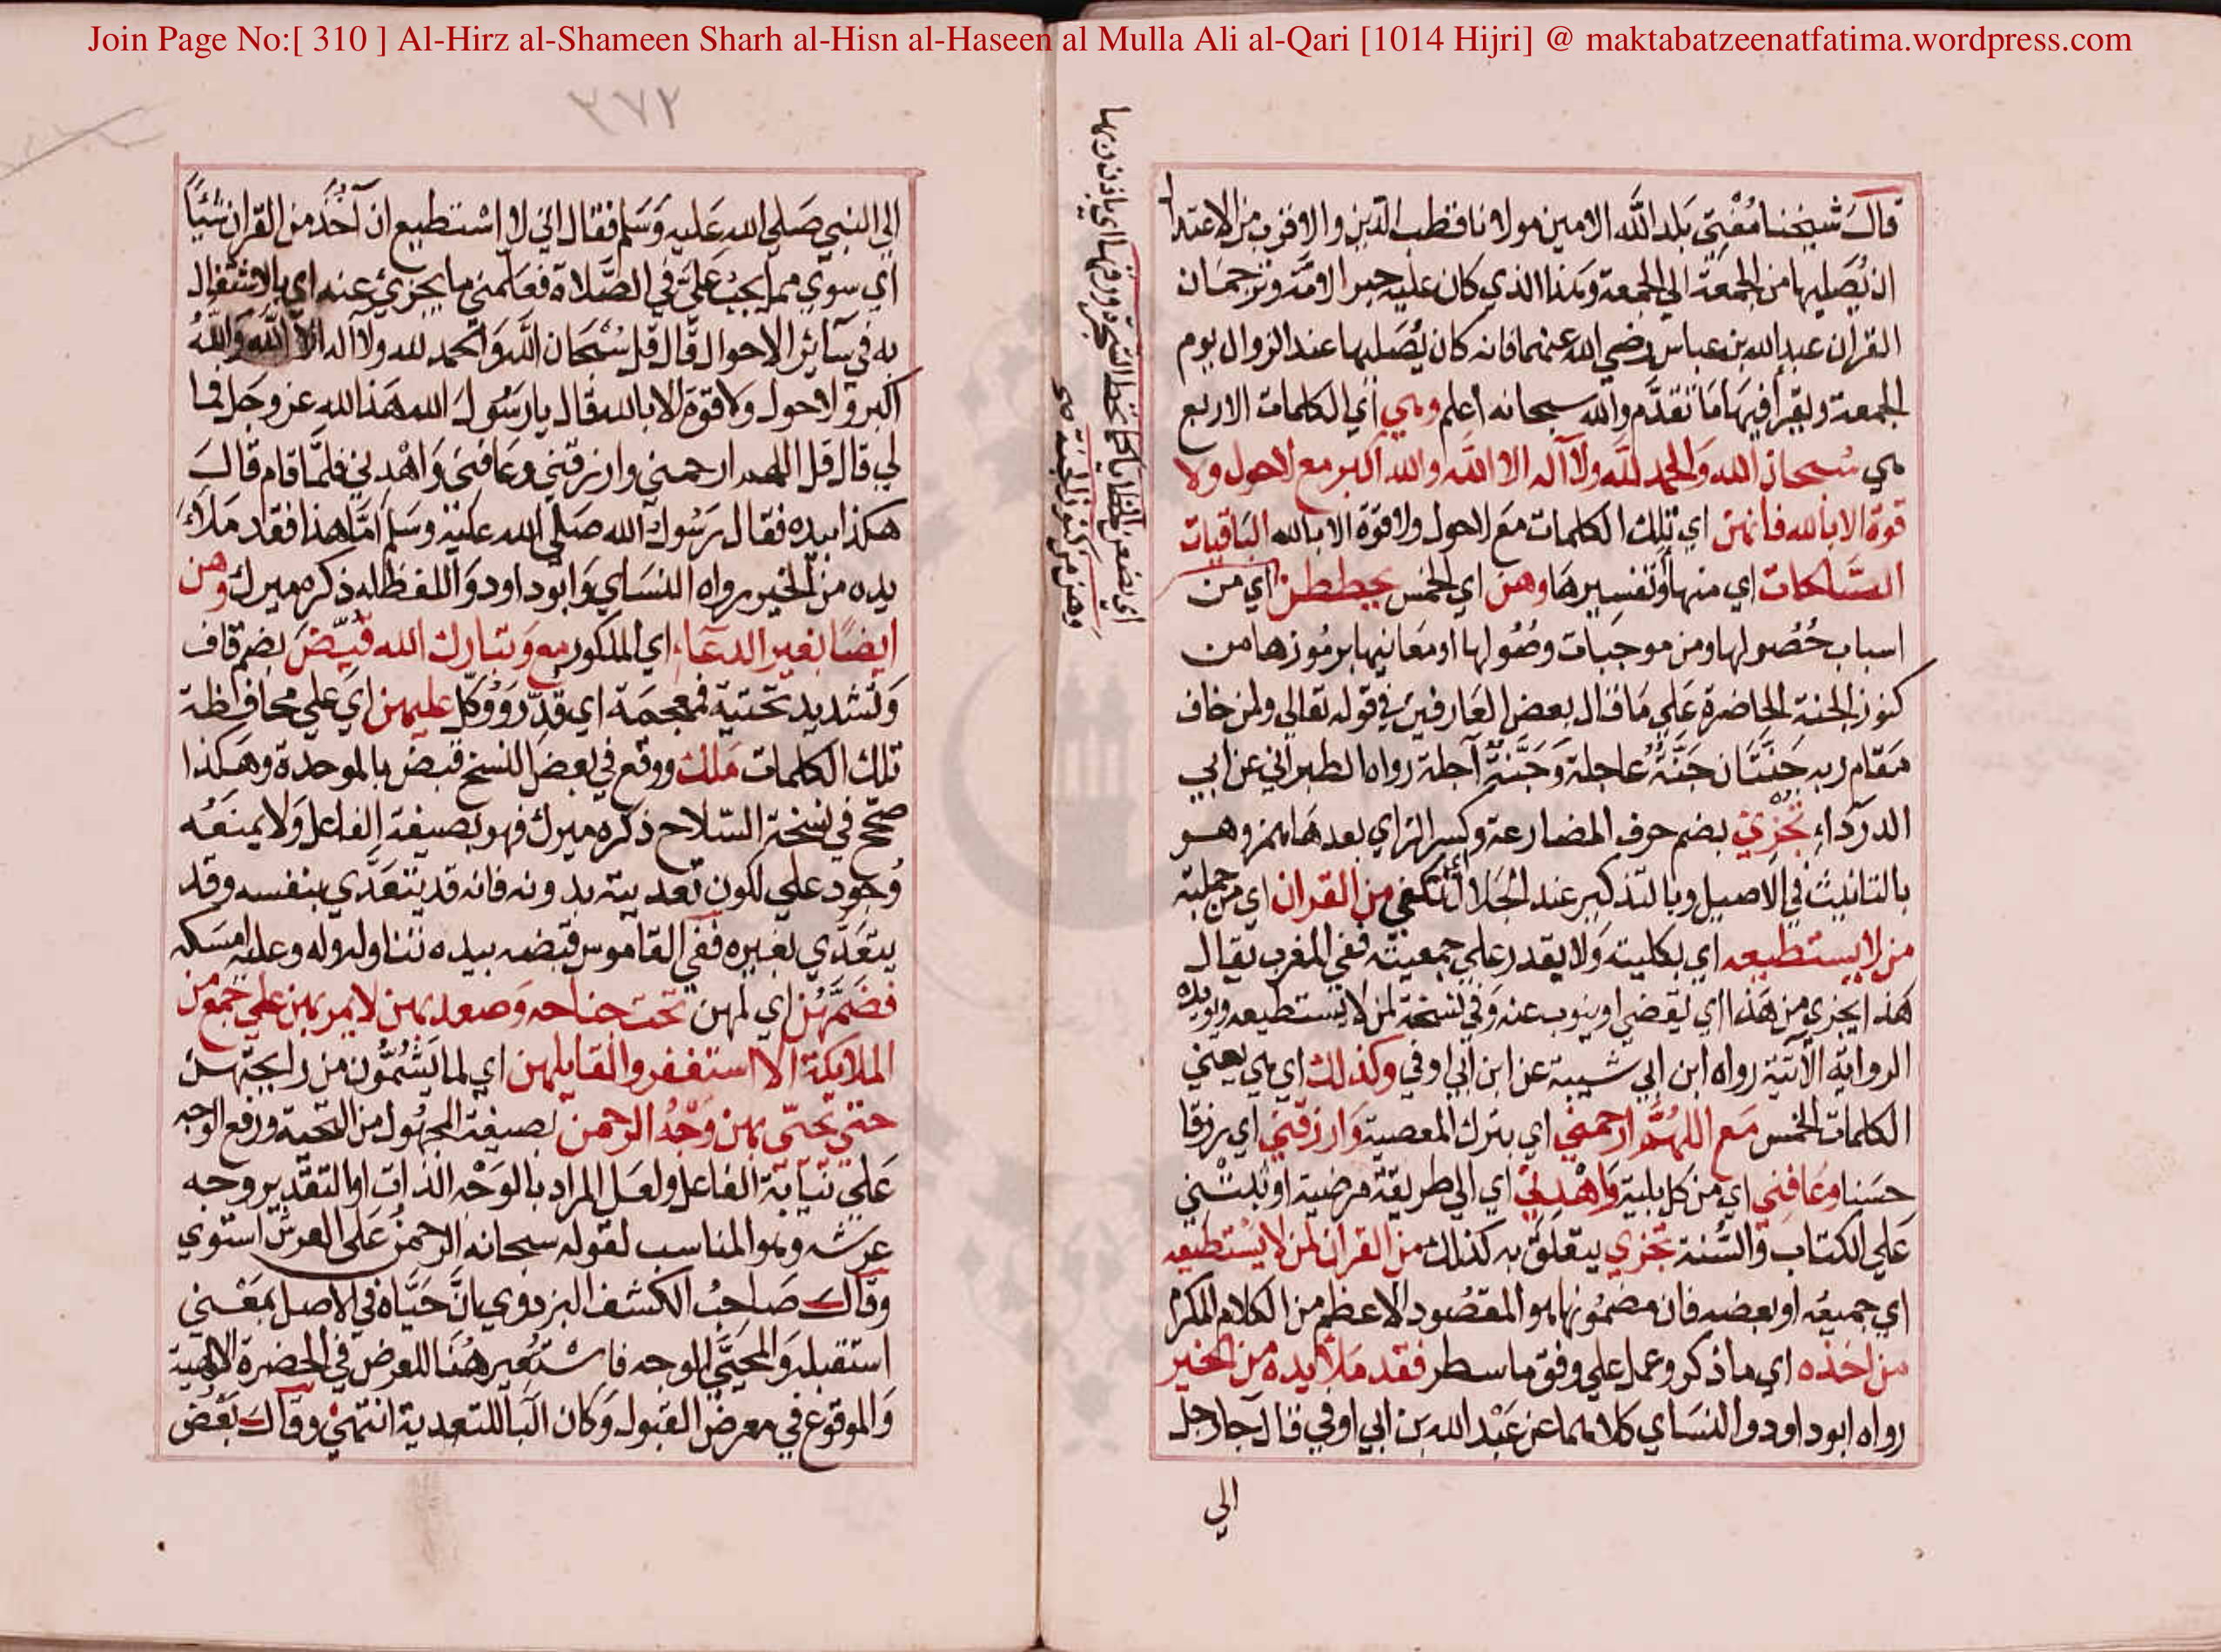 Join Page No:[ 310 ] Al-Hirz al-Shameen Sharh al-Hisn al-Haseen al Mulla Ali al-Qari [1014 Hijri] @ maktabatzeenatfatima.wordpress.com
قال شيخنا مفتي بلد الله الامين مولانا قطب الدين والاقرب من الاعتدال
ان يصليها من الجمعة الي الجمعة وهذا الذي كان عليه حبر الامة وترجمان
القران عبد الله بن عباس رضي الله عنهما فانه كان يصليها عند الزوال يوم
الجمعة ويقرأ فيها ما تقدم والله سبحانه اعلم وهي أي الكلمات الاربع
هي سبحان الله والحمد لله ولا آله الا الله والله اكبر مع لاحول ولا
قوة الا بالله فانهن اي تلك الكلمات مع لاحول ولا قوة الا بالله الباقيات
الصالحات اي منها أو تفسيرها وهن اي الخمس يحططن اي من
اسباب حصولها ومن موجبات وصولها او معانيها برموزها من
كنوز الجنة الحاضرة علي ما قال بعض العارفين في قوله تعالي ولمن خاف
مقام ربه جنتان جنة عاجلة وجنة آجلة رواه الطبراني عن ابي
الدرداء تجزئ بضم حرف المضارعة وكسر الزاي بعدها همز وهو
بالتانيث في الاصيل وبالتذكير عند الجلال أي تكفي من القران اي من جملته
من لا يستطيعه اي بكليته ولا يقدر علي جمعيته ففي المغرب يقال
هذا يجزي من هذا اي يقضي او ينوب عنه وفي نسخة لمن لا يستطيعه ويؤيده
الرواية الآتية رواه ابن ابي شيبة عن ابن ابي اوفي وكذلك اي هي يعني
الكلمات الخمس مع اللهم ارحمني اي بترك المعصية وارزقني اي رزقا
حسنا وعافني اي من كل بلية واهدني اي الي طريقة مرضية او ثبتني
علي الكتاب والسنة تجزي يتعلق به كذلك من القران لمن لا يستطيعه
اي جميعه او بعضه فان مضمونها هو المقصود الاعظم من الكلام المكرم
من اخذه اي ما ذكر وعمل علي وفق ما سطر فقد ملأ يده من الخير
رواه ابو داود والنسائي كلاهما عن عبد الله بن ابي اوفي قال جا رجل
الي
وهن من كنوز الجنة صح
٣٧٢
الي النبي صلي الله عليه وسلم فقال اني لا استطيع ان آخذ من القران شيئا
اي سوي مما يجب علي في الصلاة فعلمني ما يجزئ عنه اي بالاشتغال
به في سائر الاحوال قال قل سبحان الله والحمد لله ولا اله الا الله والله
اكبر ولا حول ولا قوة الا بالله قال يا رسول الله هذا لله عز وجل فما
لي قال قل اللهم ارحمني وارزقني وعافني واهدني فلما قام قال
هكذا بيده فقال رسول الله صلي الله عليه وسلم اما هذا فقد ملأ
يده من الخير رواه النسائي وابو داود واللفظ له ذكره ميرك وهن
ايضا بغير الدعاء اي المذكور مع وتبارك الله قيض بضم قاف
وتشديد تحتية فمعجمة اي قدر ووكل عليهن اي علي محافظة
تلك الكلمات ملك ووقع في بعض النسخ قبض بالموحدة وهكذا
صحح في نسخة السلاح ذكره ميرك فهو بصيغة الفاعل ولا يمنعه
وجود علي لكون تعديته بدونه فانه قد يتعدي بنفسه وقد
يتعدي بغيره ففي القاموس قبضه بيده تناوله وله وعليه امسكه
فضمهن اي لهن تحت جناحه وصعد بهن لا يمر بهن علي جمع من
الملائكة الا استغفروا لقايلهن اي لما يشمون من رايحتهن
حتي يحيي بهن وجه الرحمن بصيغة المجهول من التحية ورفع الوجه
علي نيابة الفاعل ولعل المراد بالوجه الذات او التقدير وجه
عرشه وهو المناسب لقوله سبحانه الرحمن علي العرش استوي
وقال صاحب الكشف البزدوي بان حياه في الاصل بمعني
استقبله والمحيي الوجه فاستعير هنا للعرض في الحضرة الالهية
والوقوع في معرض القبول وكان البا للتعدية انتهي وقال بعض